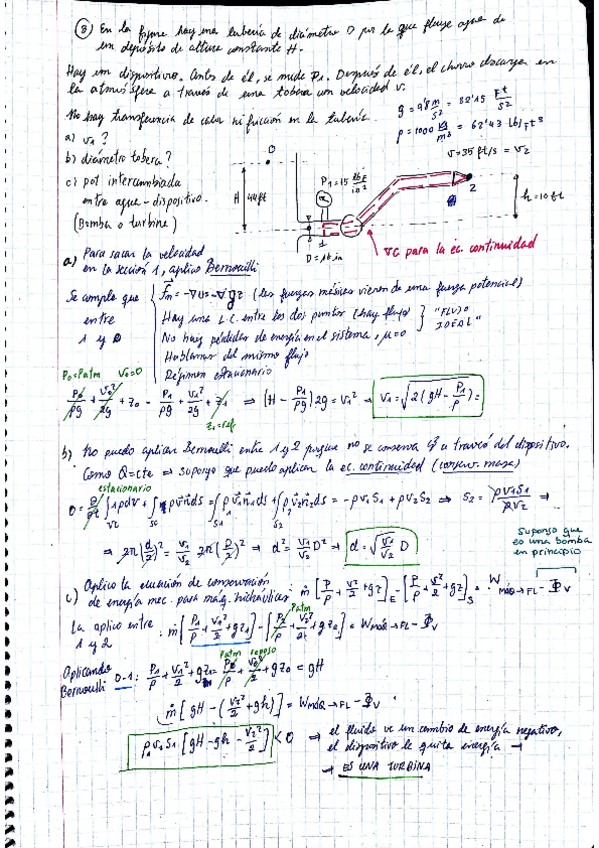 8) En la figura hay una tubería de diámetro D por la que fluye agua de
un depósito de altura constante H.
Hay un dispositivo. Antes de él, se mide P1. Después de él, el chorro descarga en
la atmósfera a través de una tobera con velocidad v.
No hay transferencia de calor ni fricción en la tubería.
g = 9'8 m/s² = 32'15 Ft/s²
ρ = 1000 kg/m³ = 62'43 lb/Ft³
a) v1?
b) diámetro tobera?
c) pot intercambiada
entre agua-dispositivo.
(Bomba o turbina)
0
H 44ft
P1 = 15 lbf/in²
v = 35 ft/s = v2
2
h = 10 ft
1
D = 16 in
VC para la ec. continuidad
a) Para sacar la velocidad
en la sección 1, aplico Bernoulli
Se cumple que
entre
1 y 0
fm = -∇U = -∇gz (las fuerzas másicas vienen de una fuerza potencial)
Hay una L.C. entre los dos puntos (hay flujo)
No hay pérdidas de energía en el sistema, μ=0
"FLUJO IDEAL"
Hablamos del mismo flujo
Régimen estacionario
P0=Patm v0=0
P0/ρg + v0²/2g + z0 - P1/ρg + v1²/2g + z1 ⇒ (H - P1/ρg) 2g = v1² → v1 = √2(gH - P1/ρ) =
z1=ref
b) No puedo aplicar Bernoulli entre 1 y 2 porque no se conserva a través del dispositivo.
Como Q=cte ⇒ supongo que puedo aplicar la ec. continuidad (conserv. masa)
estacionario
0 = ∂/∂t ∫VC ρdV + ∫SC ρv̄n̄ds = ∫S1 ρv̄1n̄1ds + ∫S2 ρv̄2n̄2ds = -ρv1S1 + ρv2S2 ⇒ S2 = ρv1S1/ρv2 ⇒
⇒ π(d/2)² = v1/v2 π(D/2)² ⇒ d² = v1/v2 D² → d = √v1/v2 D
Supongo que
es una bomba
en principio
c) Aplico la ecuación de conservación
de energía mec. para máq. hidráulicas: ṁ[P/ρ + v²/2 + gz]E - [P/ρ + v²/2 + gz]S = WMÁQ→FL - ΦV
La aplico entre
1 y 2
: ṁ[P1/ρ + v1²/2 + gz1] - [P2/ρ + v2²/2 + gz2] = WMÁQ→FL - ΦV
Patm
Aplicando
Bernoulli 0-1: P1/ρ + v1²/2 + gz1 = P0/ρ + v0²/2 + gz0 = gH
Patm reposo
ṁ[gH - (v2²/2 + gh)] = WMÁQ→FL - ΦV
ρ v1S1 [gH - gh - v2²/2] < 0 ⇒ el fluido ve un cambio de energía negativo,
el dispositivo le quita energía →
→ ES UNA TURBINA